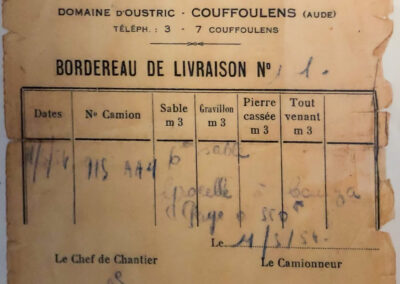 DOMAINE D'OUSTRIC - COUFFOULENS (AUDE)
TÉLÉPH. : 3 - 7 COUFFOULENS
BORDEREAU DE LIVRAISON No 1
Dates No Camion Sable m 3 Gravillon m 3 Pierre cassée m 3 Tout venant m 3
115 AA4 sable
parcelle à
Paye 550
Le 11/5/54
Le Chef de Chantier Le Camionneur